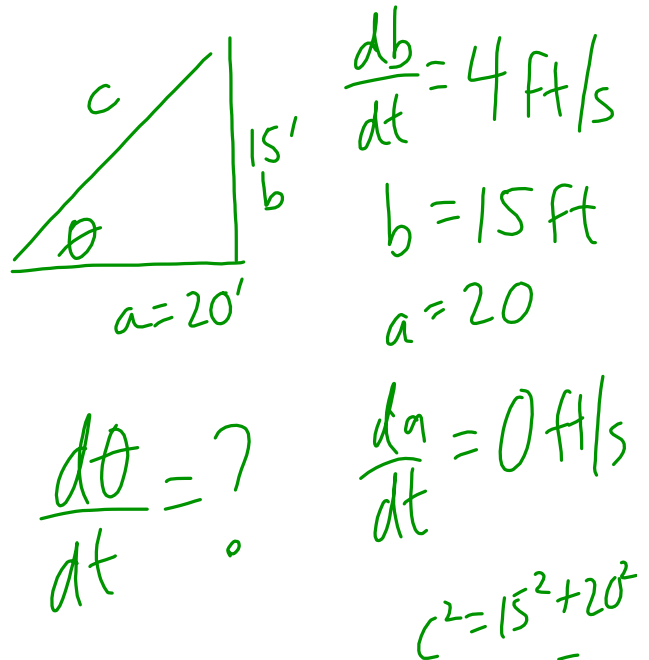 c
15'
b
θ
a=20'
db/dt = 4 ft/s
b = 15 ft
a = 20
da/dt = 0 ft/s
dθ/dt = ?
c² = 15² + 20²